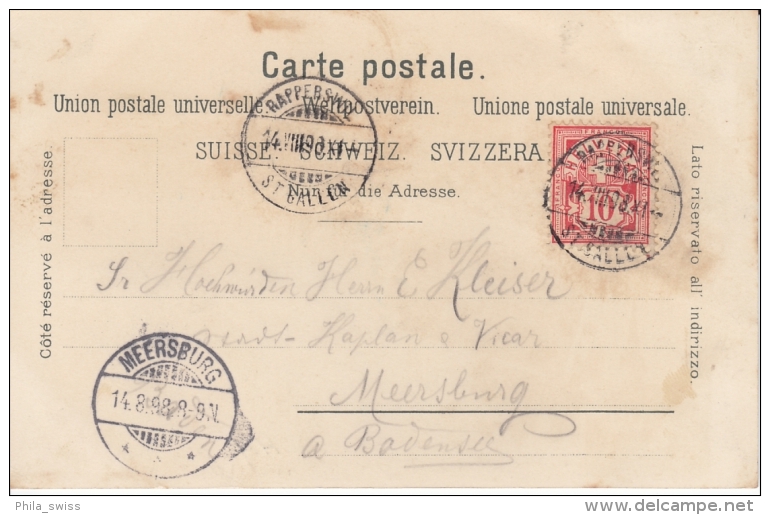 Carte postale.
Union postale universelle. Weltpostverein. Unione postale universale.
SUISSE. SCHWEIZ. SVIZZERA.
Nur für die Adresse.
Côté réservé à l'adresse.
Lato riservato all' indirizzo.
RAPPERSWIL
14.VIII.98.XI
ST GALLEN
FRANCO
10
RAPPERSWIL
14.VIII.98.XI
ST GALLEN
Sr Hochwürden Herrn E Kleiser
Stadt-Kaplan & Vicar
Meersburg
a Bodensee
MEERSBURG
14.8.98.8-9N.
Phila_swiss
delcampe.net